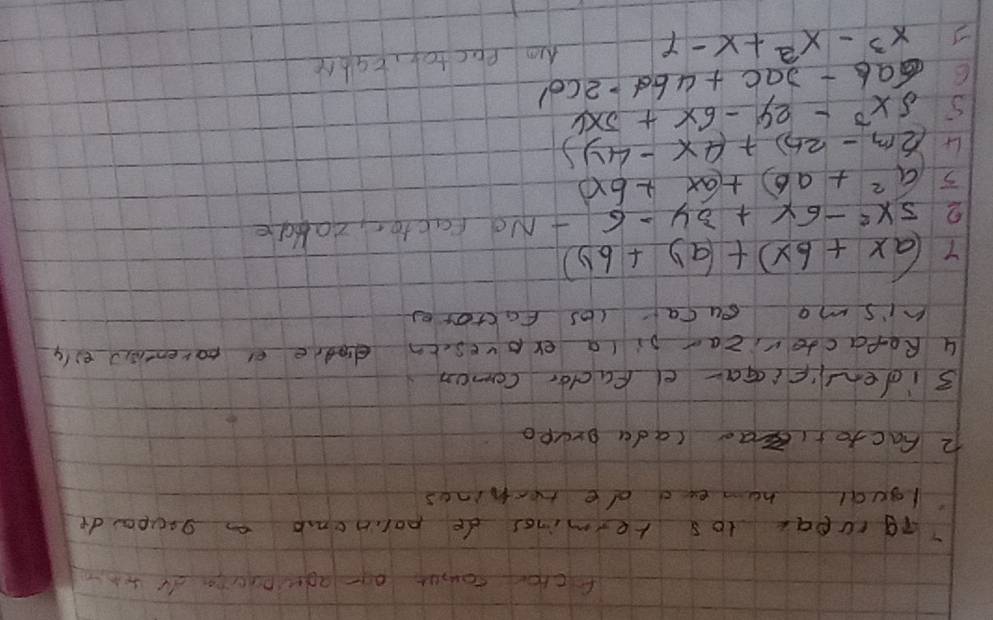 Factor comun agrupación de
1 Agrupar los terminos de polinomio en grupos de
igual numero de terminos
2 Factorizar cada grupo
3 identificar el factor comun
4 Refactorizar si la expresión entre el parentesis es la
misma sacar los factores
1 (ax + bx) + (ay + by)
2 3x² - 6x + 3y - 6 - No factorizable
3 (a² + ab) + (ax + bx)
4 (2m - 2n) + (4x - 4y)
5 5x² - 2y - 6x + 5xy
6 6ab - 3ac + 4bd - 2cd
7 x³ - x² + x - 1 No factorizable